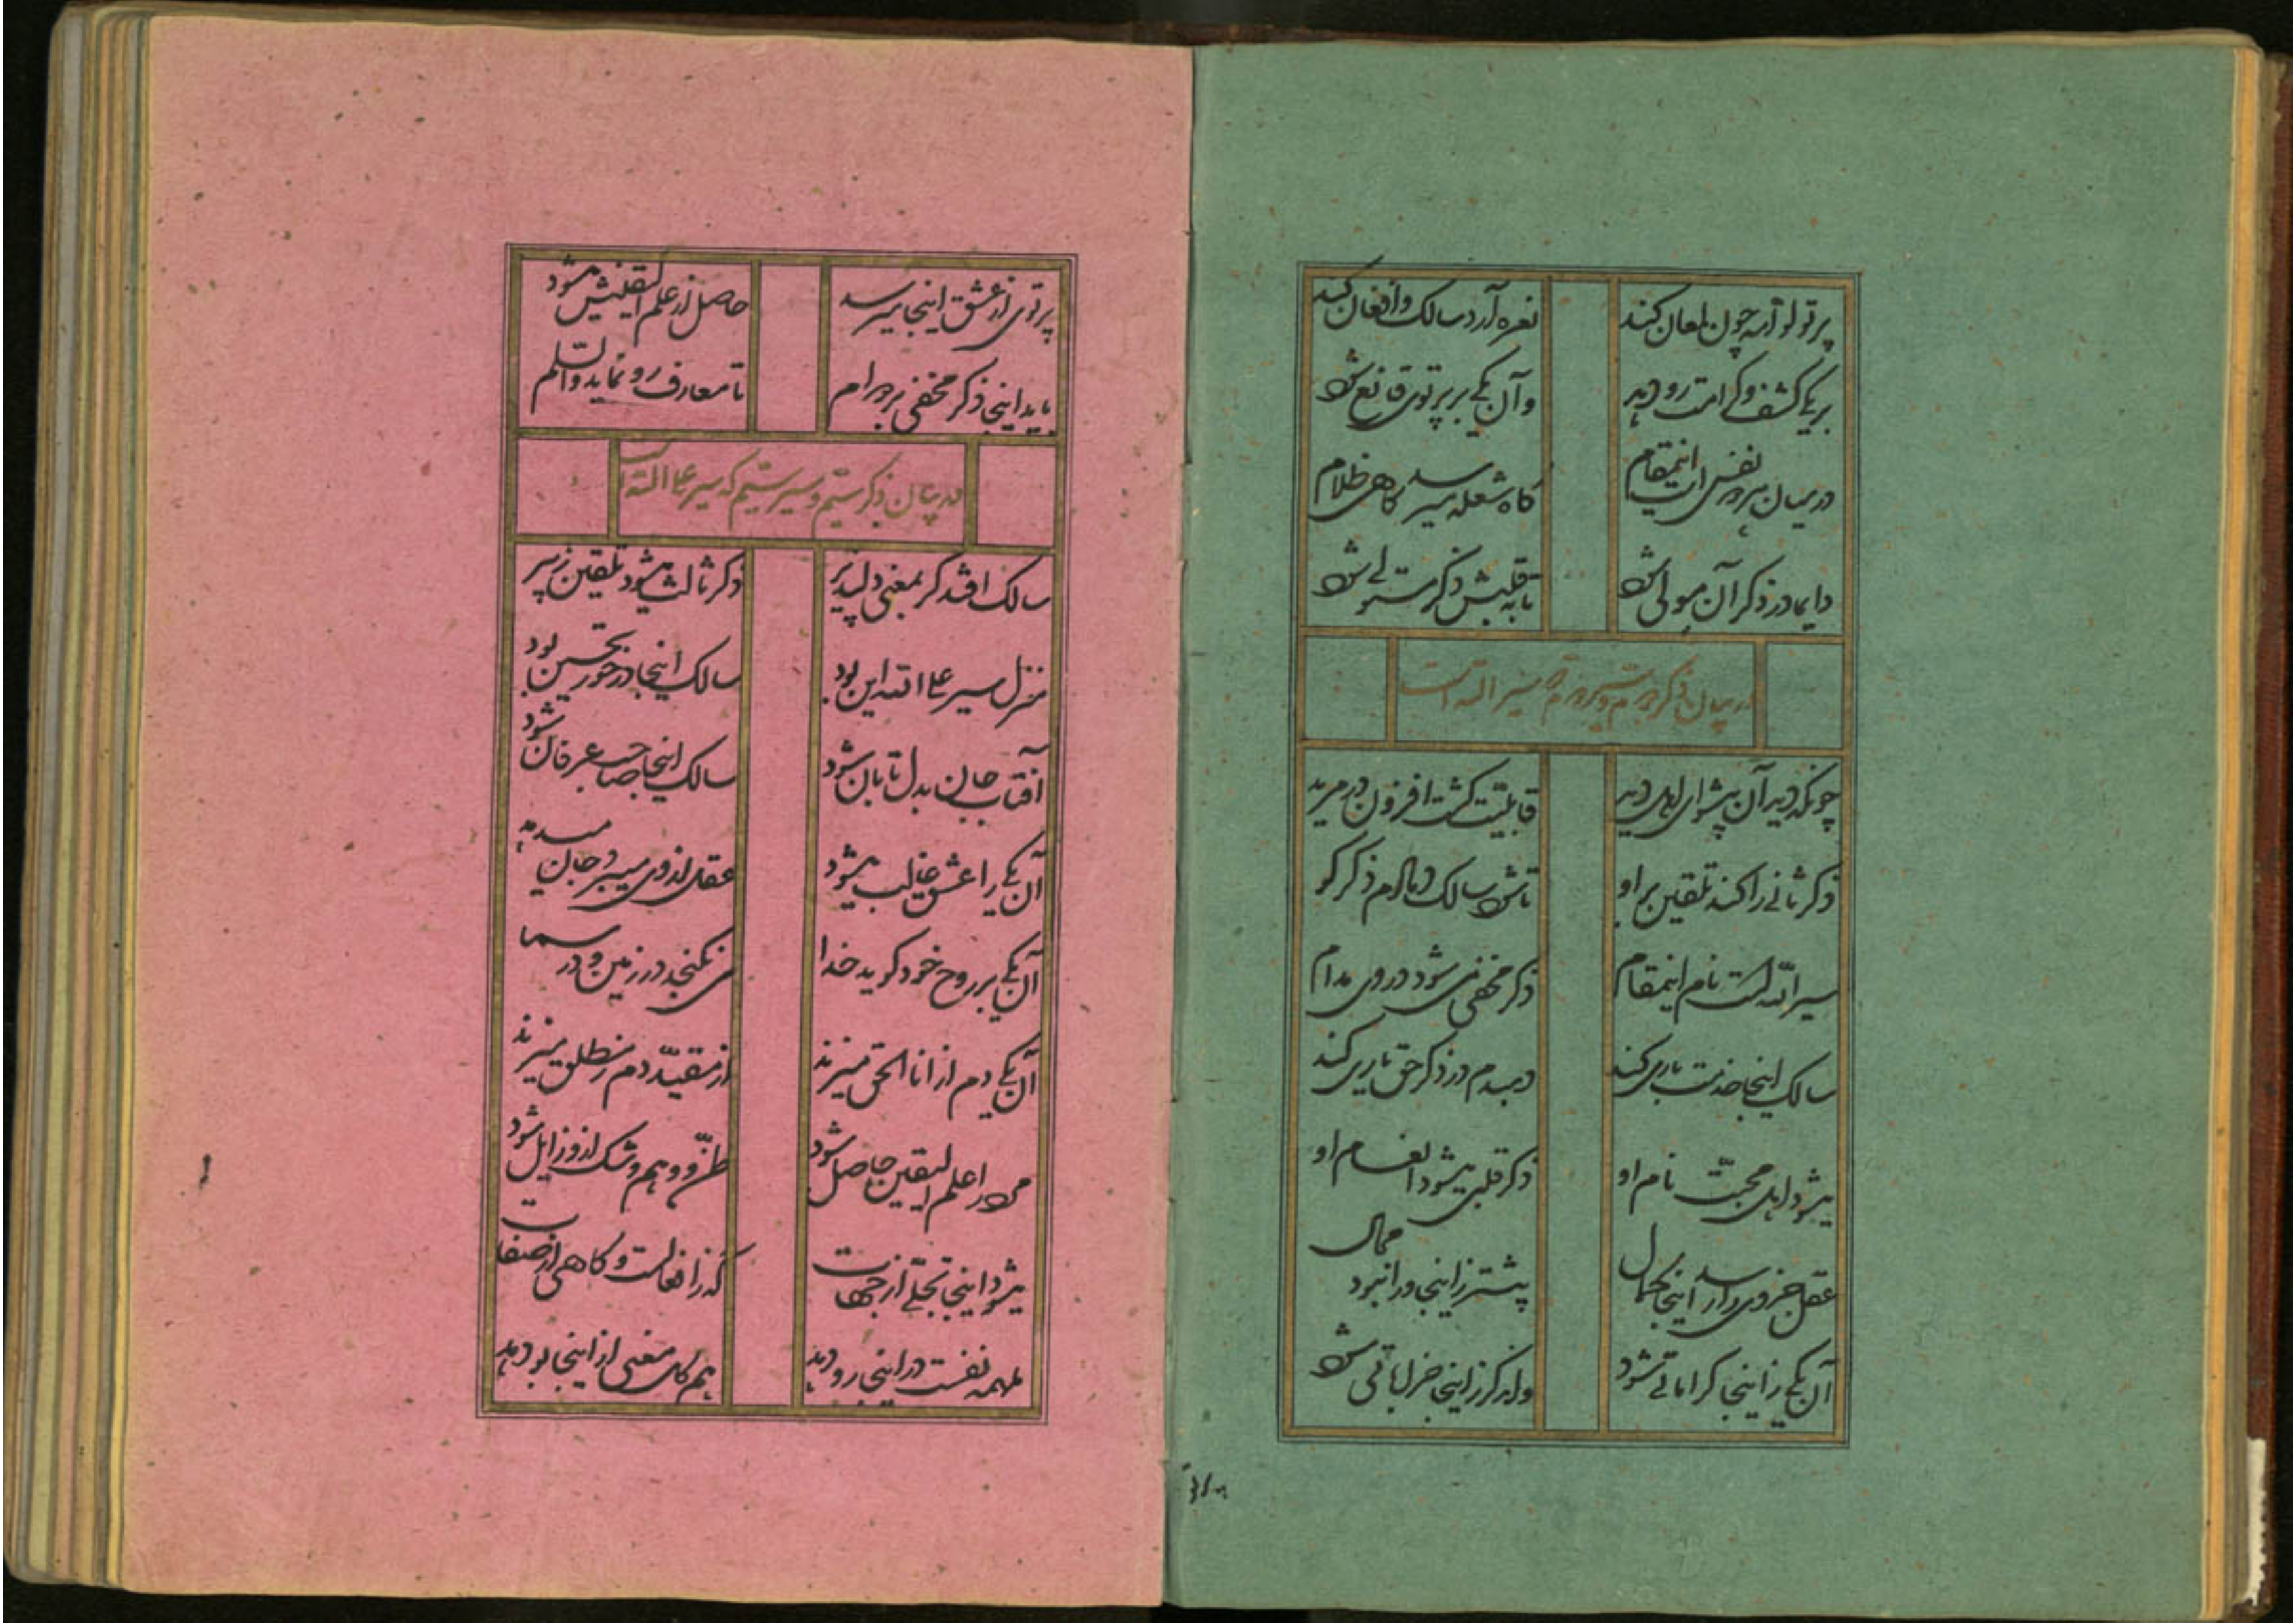 پرتو لوامه چون لمعان کند نعره آرد سالک و افغان کند
بر یکی کشف و کرامت رو دهد وآن یکی بر پرتوی قانع شود
در میان هر دو نفس است اینمقام گاه شعله میرسد گاهی ظلام
دایما در ذکر آن مولی شود تا به قلبش ذکر مستولی شود
در بیان ذکر دوم و سیر دوم که سیر الله است
چونکه دید آن پیشوای اهل دید قابلیت گشت افزون در مرید
ذکر ثانی را کند تلقین بر او تا شود سالک دمادم ذکر گو
سیر الله است نام اینمقام ذکر مخفی می شود در وی مدام
سالک اینجا خدمت باری کند دمبدم در ذکر حق یاری کند
میشود اهل محبت نام او ذکر قلبی میشود انعام او
عقل جزوی را رسد اینجا کمال پیشتر زاینجا ورا نبود مجال
آن یکی زاینجا کراماتی شود واندگر زاینجا خراباتی شود
پرتوی از عشق اینجا میرسد حاصل از علم الیقینش میشود
باید اینجا ذکر مخفی بر دوام تا معارف رو نماید والسلام
در بیان ذکر سیم و سیر سیم که سیر علی الله است
سالک افتد گر بمعنی دلپذیر ذکر ثالث میشود تلقین ز پیر
منزل سیر علی الله این بود سالک اینجا در خور تحسین بود
آفتاب جان بدل تابان شود سالک اینجا صاحب عرفان شود
آن یکی را عشق غالب میشود عقل از وی میبرد جان میدهد
آن یکی بر روح خود گوید خدا می نگنجد در زمین و در سما
آن یکی دم از انا الحق میزند از مقید دم ز مطلق میزند
مر ورا علم الیقین حاصل شود ظن و وهم و شک از او زایل شود
میشود اینجا تجلی از جهات گه ز افعالست و گاهی از صفات
ملهمه نفست در اینجا رو دهد هم گل معنی از اینجا بو دهد